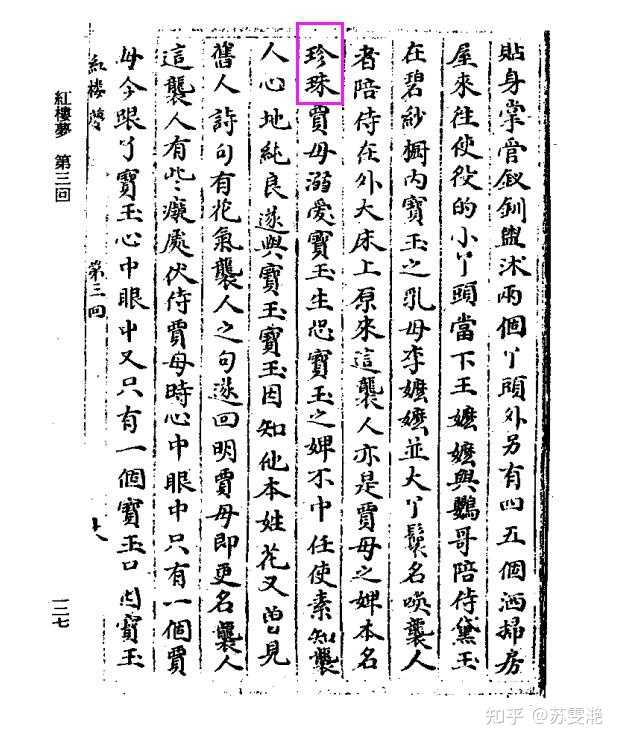 貼身掌管釵釧盥沐兩個丫頭外另有四五個洒掃房
屋來往使役的小丫頭當下王嬤嬤與鸚哥陪侍黛玉
在碧紗橱內寶玉之乳母李嬤嬤並大丫鬟名喚襲人
者陪侍在外大床上原來這襲人亦是賈母之婢本名
珍珠賈母溺愛寶玉生恐寶玉之婢不中任使素知襲
人心地純良遂與寶玉寶玉因知他本姓花又曽見
舊人詩句有花氣襲人之句遂回明賈母即更名襲人
這襲人有些癡處伏侍賈母時心中眼中只有一個賈
母今跟了寶玉心中眼中又只有一個寶玉只因寶玉
紅樓夢
第三回
紅樓夢 第三回
一二七
知乎 @苏雯滟